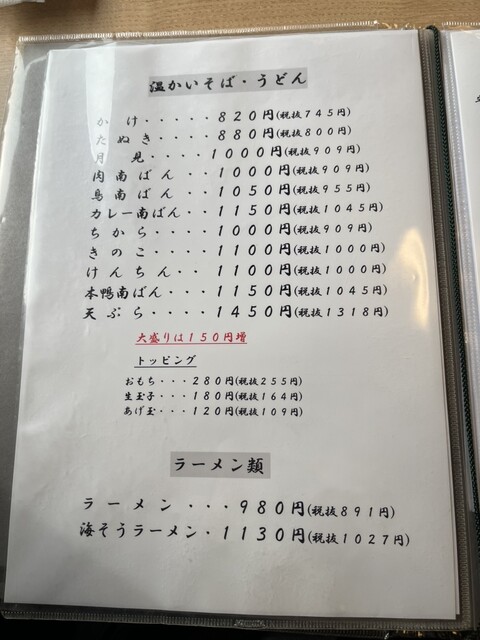 温かいそば・うどん
かけ・・・・・820円(税抜745円)
たぬき・・・・880円(税抜800円)
月見・・・・1000円(税抜909円)
肉南ばん・・1000円(税抜909円)
鳥南ばん・・1050円(税抜955円)
カレー南ばん・・1150円(税抜1045円)
ちから・・・・1000円(税抜909円)
きのこ・・・・1100円(税抜1000円)
けんちん・・1100円(税抜1000円)
本鴨南ばん・・・1150円(税抜1045円)
天ぷら・・・・1450円(税抜1318円)
大盛りは150円増
トッピング
おもち・・・280円(税抜255円)
生玉子・・・180円(税抜164円)
あげ玉・・・120円(税抜109円)
ラーメン類
ラーメン・・・980円(税抜891円)
海そうラーメン・1130円(税抜1027円)